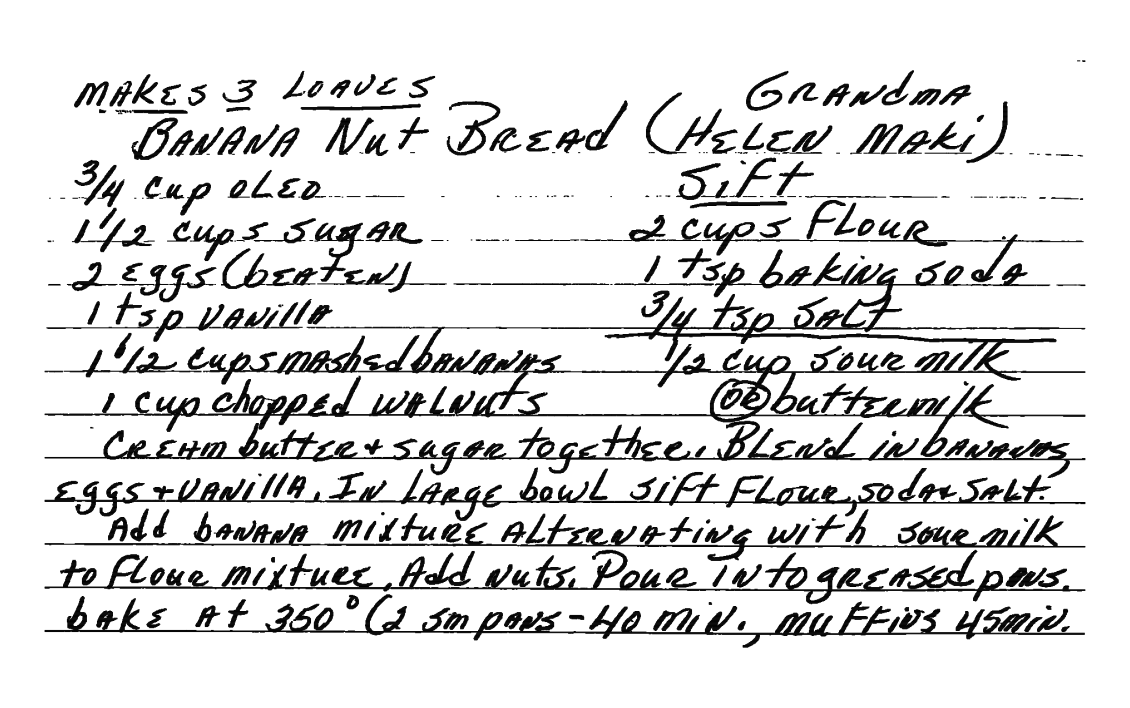 MAKES 3 LOAVES
GRANDMA
BANANA NUT BREAD (HELEN MAKI)
3/4 cup OLEO
SIFT
1 1/2 cups SUGAR
2 cups FLOUR
2 EGGS (bEATEN)
1 tsp bAKING SODA
1 tsp VANIllA
3/4 tsp SALT
1 1/2 cups MAShed bANANAS
1/2 cup SOUR MILK
1 cup chopped WALNUTS
OR buttermilk
CREAM butter + SUGAR together. BLEND in bANANAS,
EGGS + VANIllA. IN LARGE bowl SIFT FLOUR, SODA + SALT.
Add bANANA mixture ALTERNATING with SOUR milk
to FLOUR mixture. Add NUTS. POUR INTO GREASED pANS.
bAKE At 350° (2 sm pANS - 40 MIN., MUFFINS 45 MIN.